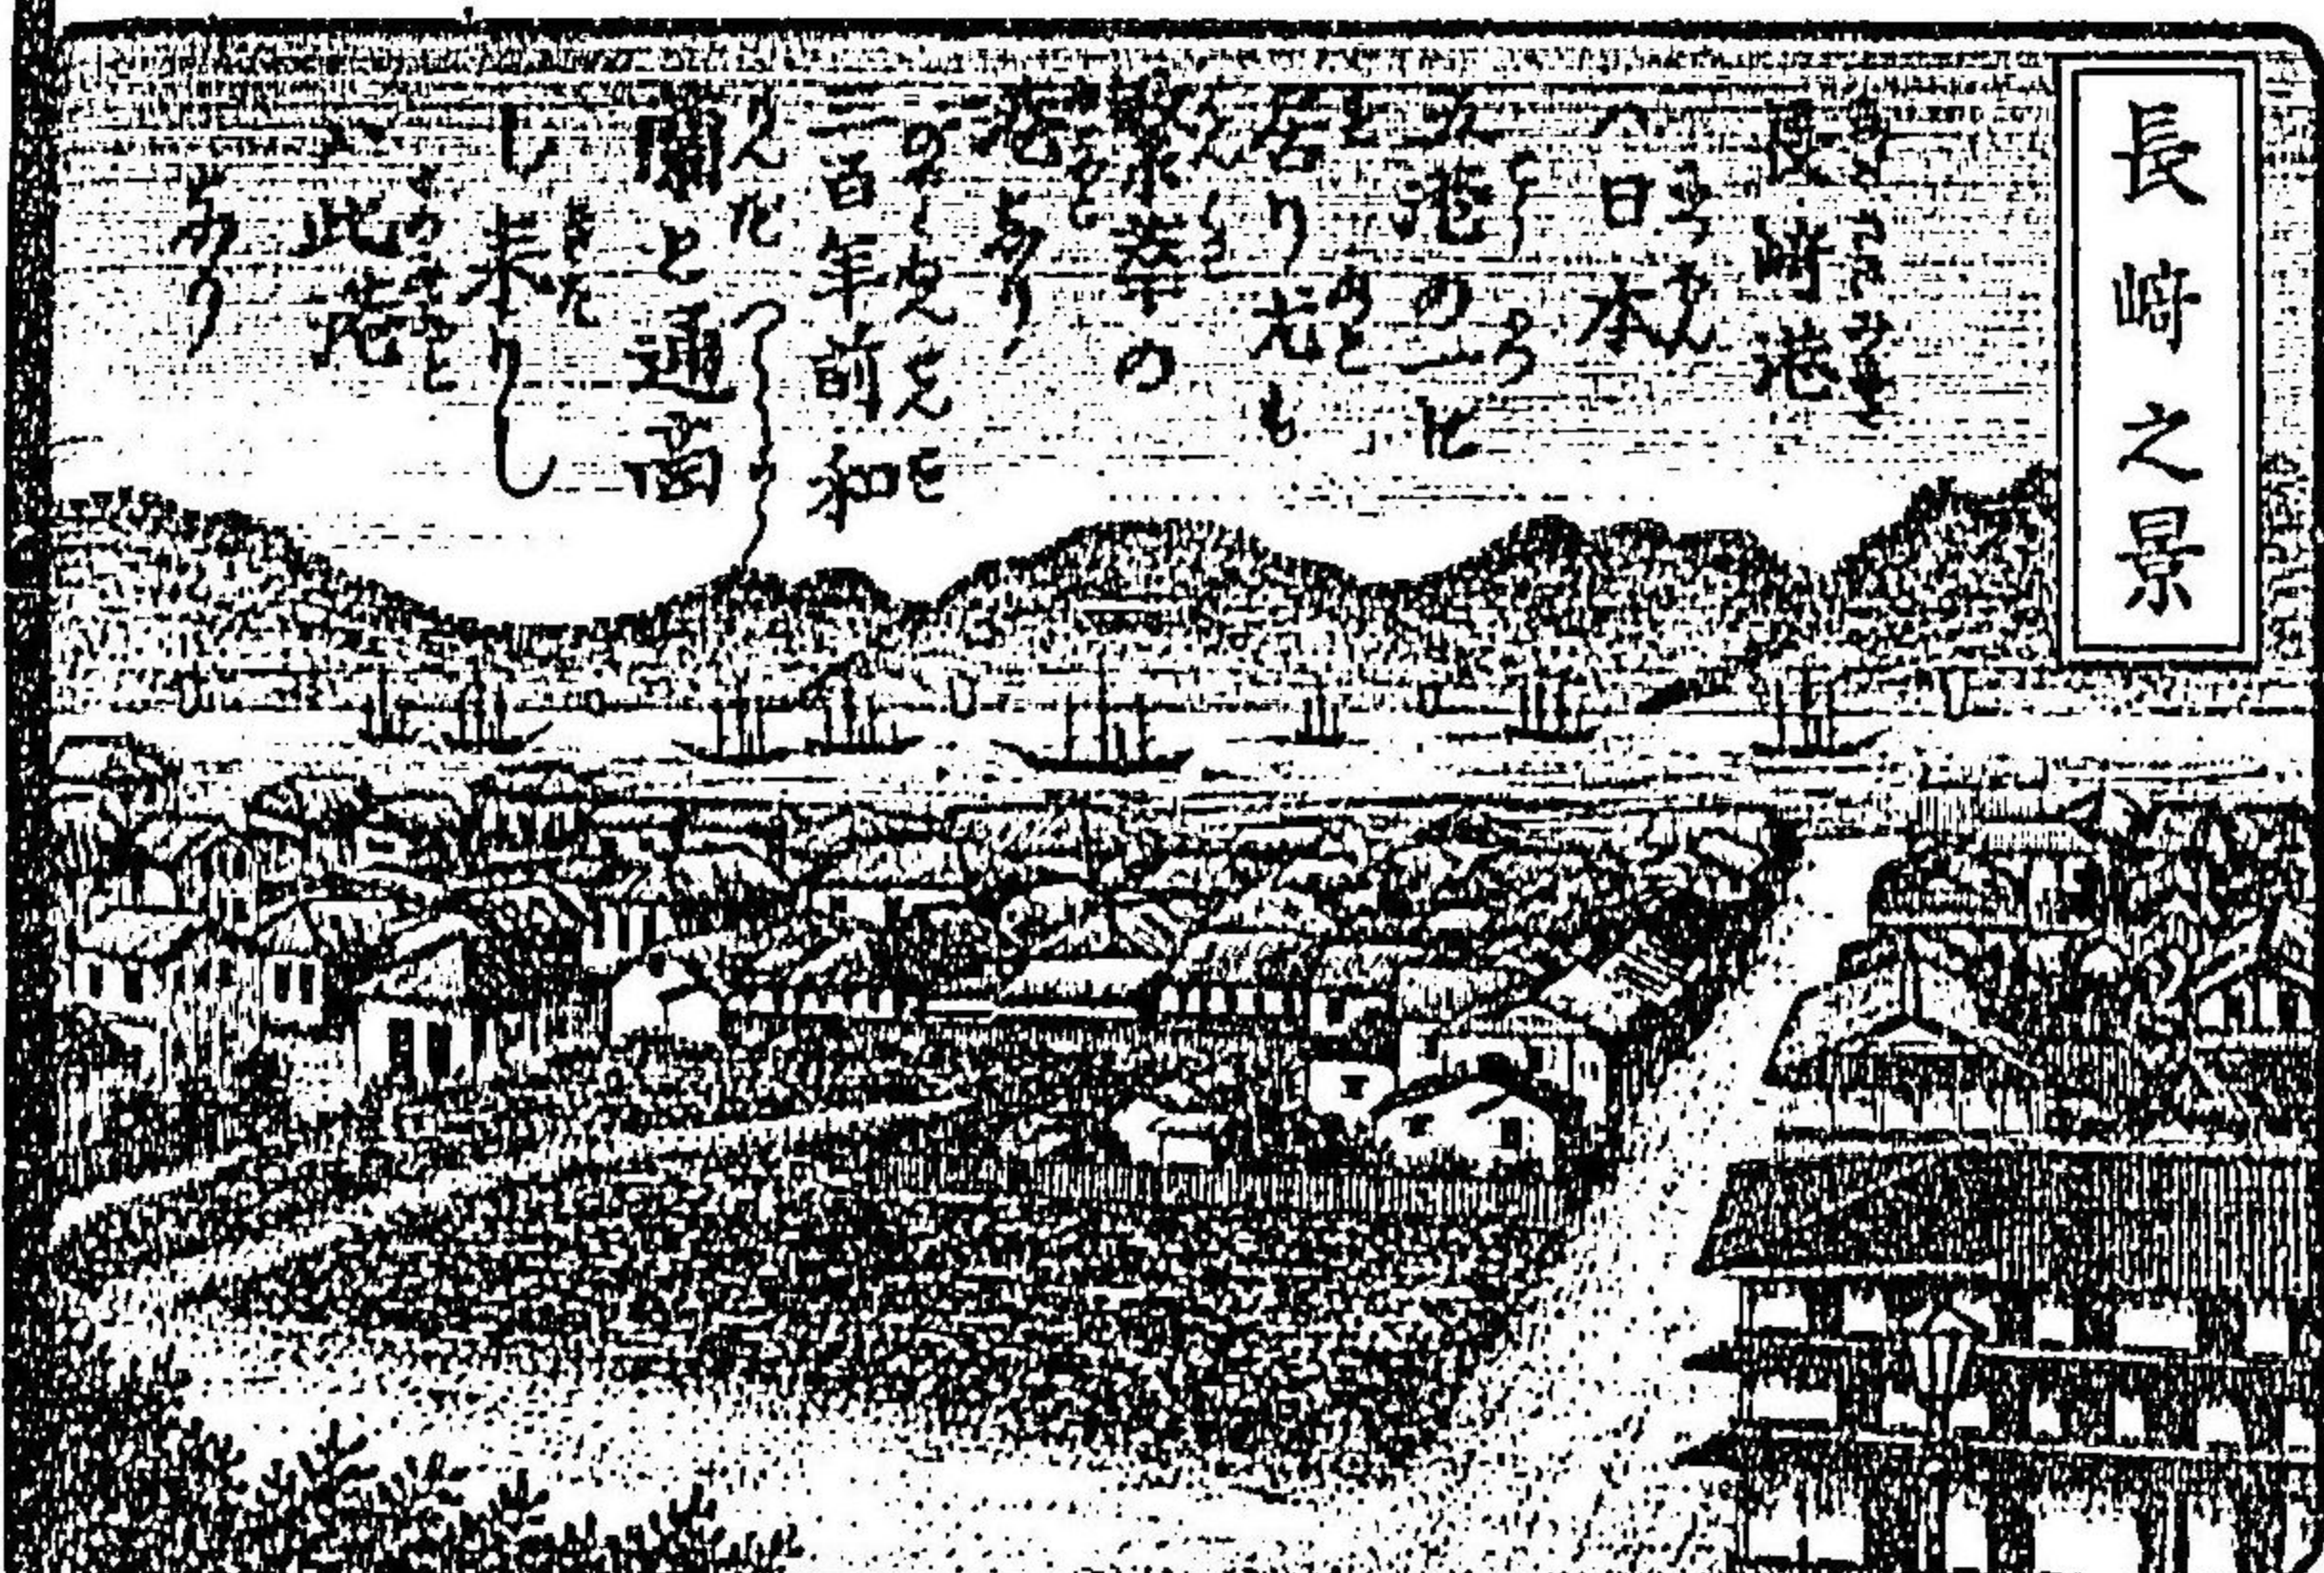 長崎之景
長崎港
ハ日本
五港の一に
居り尤も
繁華の
港なり
三百年前和
蘭と通商
し来りし
ハ此港
なり